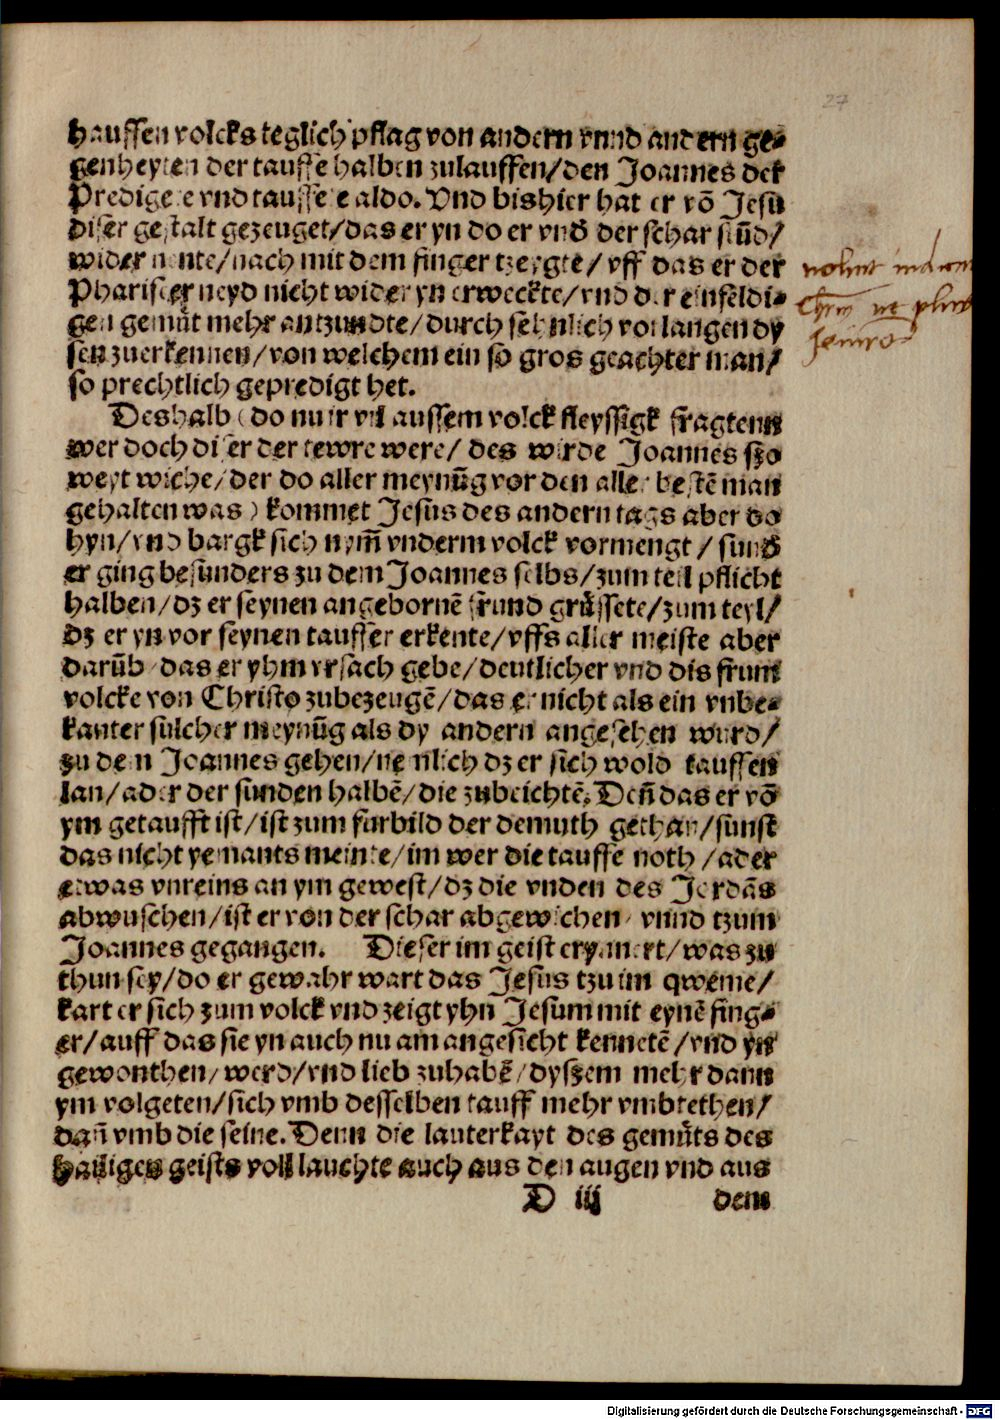 27
hauffen volcks teglich pflag von andern vnnd andern ge⸗
genheyten der tauffe halben zulauffen/den Joannes der
Predigete vnd tauffete aldo. Vnd bishier hat er võ Jesu
diser gestalt gezeuget/das er yn do er vnd̄ der schar stũd/
wider nente/nach mit dem finger tzeygte/vff das er der
Phariseer neyd nicht wider yn erweckte/vnd der einfeldi⸗
gen gemüt mehr antzundte/durch sehnlich vorlangen dy
sen zuerkennen/von welchem ein so gros geachter man/
so prechtlich gepredigt het.
Deshalb (do nu ir vil aussem volck fleyssigk fragtenn
wer doch diser der tewre were/ des wirde Joannes szo
weyt wiche/der do aller meynũg vor den aller bestē man
gehalten was) kommet Jesus des andern tags aber do
hyn/vnd bargk sich nym̄ vnderm volck vormengt/ sund̄
er ging besunders zu dem Joannes selbs/zum teil pflicht
halben/dz er seynen angebornē frund grüssete/zum teyl/
dz er yn vor seynen tauffer erkente/vffs aller meiste aber
darũb/das er yhm vrsach gebe/deutlicher vnd dis frum
volcke von Christo zubezeugē/das er nicht als ein vnbe⸗
kanter sulcher meynũg als dy andern angesehen wurd/
zu dem Joannes gehen/nemlich dz er sich wold tauffen
lan/ader der sunden halbē/die zubeichtē. Deñ das er võ
ym getaufft ist/ist zum furbild der demuth gethan/sunst
das nicht yemants meinte/im wer die tauffe noth/ader
etwas vnreins an ym gewest/dz die vnden des Jordãs
abwuschen/ist er von der schar abgewichen/ vnnd tzum
Joannes gegangen. Dieser im geist erynnert/was zu
thun sey/do er gewahr wart das Jesus tzu im qweme/
kart er sich zum volck vnd zeigt yhn Jesum mit eynē fing⸗
er/auff das sie yn auch nu am angesicht kennetē/vnd yn
gewonthen/werd/vnd lieb zuhabē/dyszem mehr dann
ym volgeten/sich vmb desselben tauff mehr vmbtethen/
dañ vmb die seine. Denn die lauterkayt des gemüts des
hailigen geists voll lauchte auch aus den augen vnd aus
D iij dem
Digitalisierung gefördert durch die Deutsche Forschungsgemeinschaft - DFG